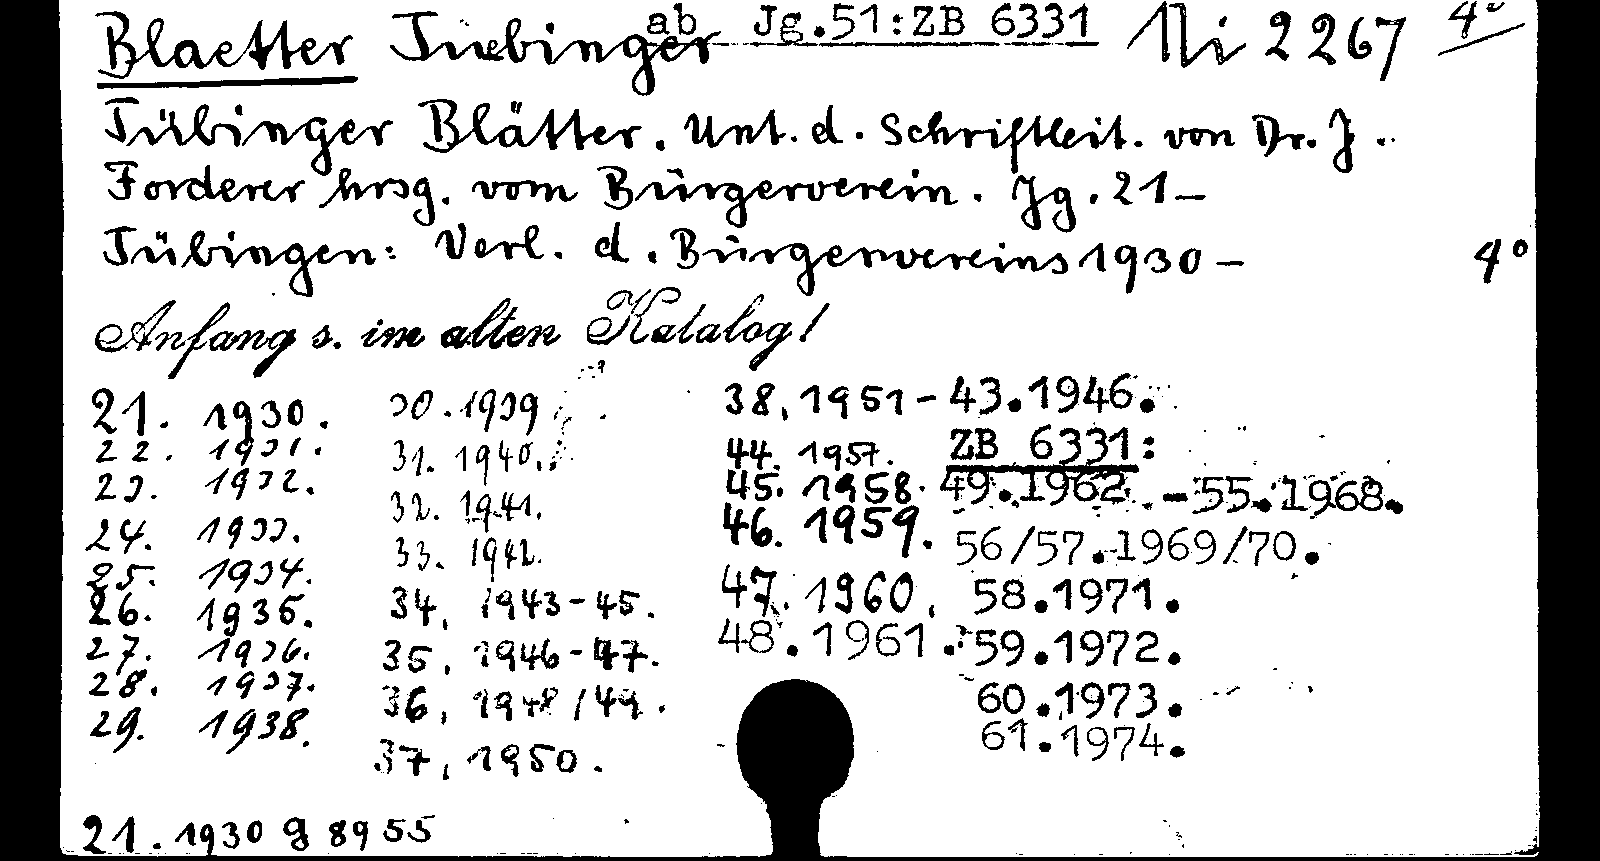 Blaetter Tuebinger ab Jg.51:ZB 6331 Ni 2267 4°
Tübinger Blätter. Unt. d. Schriftleit. von Dr. J.
Forderer hrsg. vom Bürgerverein. Jg. 21–
Tübingen: Verl. d. Bürgervereins 1930 – 4°
Anfang s. im alten Katalog!
21. 1930.
22. 1931.
23. 1932.
24. 1933.
25. 1934.
26. 1935.
27. 1936.
28. 1937.
29. 1938.
30. 1939
31. 1940.
32. 1941.
33. 1942.
34, 1943-45.
35, 1946-47.
36, 1948/49.
37, 1950.
38, 1951 - 43.1946.
44. 1957.
45. 1958.
46. 1959.
47. 1960.
48. 1961.
ZB 6331:
49.1962 - 55.1968.
56/57.1969/70.
58.1971.
59.1972.
60.1973.
61.1974.
21. 1930 g 8955